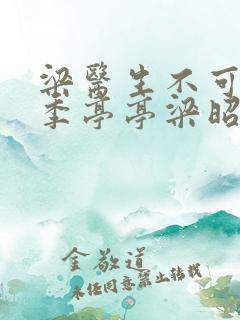 梁醫生不可
季亭亭梁昭
金敬道
未经同意禁止转载